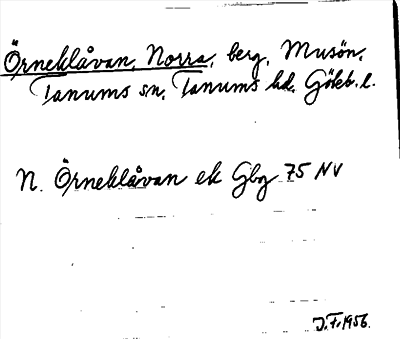 Örneklåvan, Norra, berg, Musön,
Tanums sn, Tanums hd, Göteb. l.
N. Örneklåvan ek Gbg 75 NV
J.F. 1956.